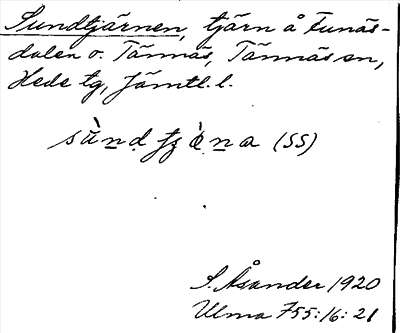 Sundtjärnen, tjärn å Funäs-
dalen o. Tännäs, Tännäs sn,
Hede tg, Jämtl. l.
(SS)
S. Åsander 1920
Ulma 755:16:21